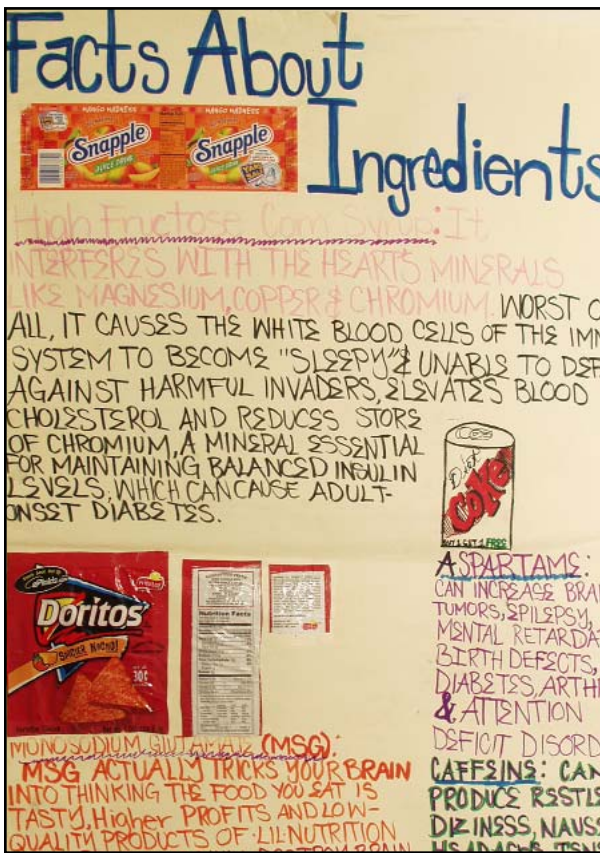 Facts About
Ingredients
MANGO MADNESS MANGO MADNESS
Snapple Snapple
JUICE DRINK JUICE DRINK
High Fructose Corn Syrup: It
INTERFERES WITH THE HEART'S MINERALS
LIKE MAGNESIUM, COPPER & CHROMIUM. WORST O
ALL, IT CAUSES THE WHITE BLOOD CELLS OF THE IMM
SYSTEM TO BECOME "SLEEPY" & UNABLE TO DEF
AGAINST HARMFUL INVADERS, ELEVATES BLOOD
CHOLESTEROL AND REDUCES STORE
OF CHROMIUM, A MINERAL ESSENTIAL
FOR MAINTAINING BALANCED INSULIN
LEVELS, WHICH CAN CAUSE ADULT-
ONSET DIABETES.
Diet
Coke
BUY 1 GET 1 FREE
Doritos
30¢
Nutrition Facts
ASPARTAME:
CAN INCREASE BRAI
TUMORS, EPILEPSY,
MENTAL RETARDA
BIRTH DEFECTS,
DIABETES, ARTHI
& ATTENTION
DEFICIT DISORD
CAFFEINE: CAN
PRODUCE RESTLE
DIZINESS, NAUS
MONOSODIUM GLUTAMATE (MSG):
MSG ACTUALLY TRICKS YOUR BRAIN
INTO THINKING THE FOOD YOU EAT IS
TASTY, Higher PROFITS AND LOW-
QUALITY PRODUCTS OF LIL NUTRITION